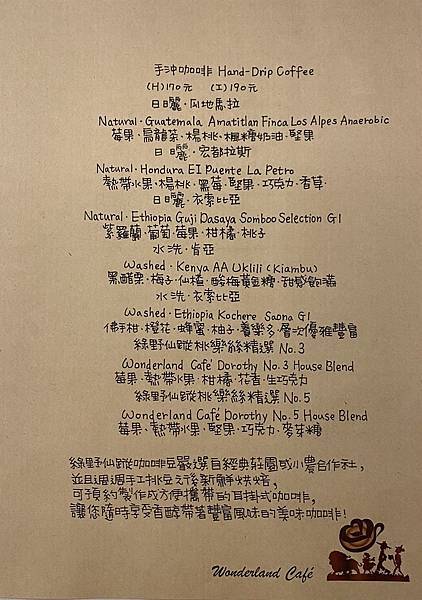 手沖咖啡 Hand-Drip Coffee
(H)170元 (I)190元
日曬．瓜地馬拉
Natural．Guatemala Amatitlan Finca Los Alpes Anaerobic
莓果．烏龍茶．楊桃．楓糖奶油．堅果
日曬．宏都拉斯
Natural．Hondura El Puente La Petro
熱帶水果．楊桃．黑莓．堅果．巧克力．香草．
日曬．衣索比亞
Natural．Ethiopia Guji Dasaya Somboo Selection G1
紫羅蘭．葡萄．莓果．柑橘．桃子
水洗．肯亞
Washed．Kenya AA Uklili (Kiambu)
黑醋栗．梅子．仙楂．酸梅黃金糖．甜感飽滿
水洗．衣索比亞
Washed．Ethiopia Kochere Saona G1
佛手柑．橙花．蜂蜜．柚子．養樂多．層次優雅豐富
綠野仙蹤桃樂絲精選 No.3
Wonderland Café Dorothy No.3 House Blend
莓果．熱帶水果．柑橘．花香．生巧克力
綠野仙蹤桃樂絲精選 No.5
Wonderland Café Dorothy No.5 House Blend
莓果、熱帶水果．堅果．巧克力．麥芽糖
綠野仙蹤咖啡豆嚴選自經典莊園或小農合作社，
並且週週手工挑豆之後新鮮烘焙，
可預約製作成方便攜帶的耳掛式咖啡，
讓您隨時享受香醇帶著豐富風味的美味咖啡！
Wonderland Café